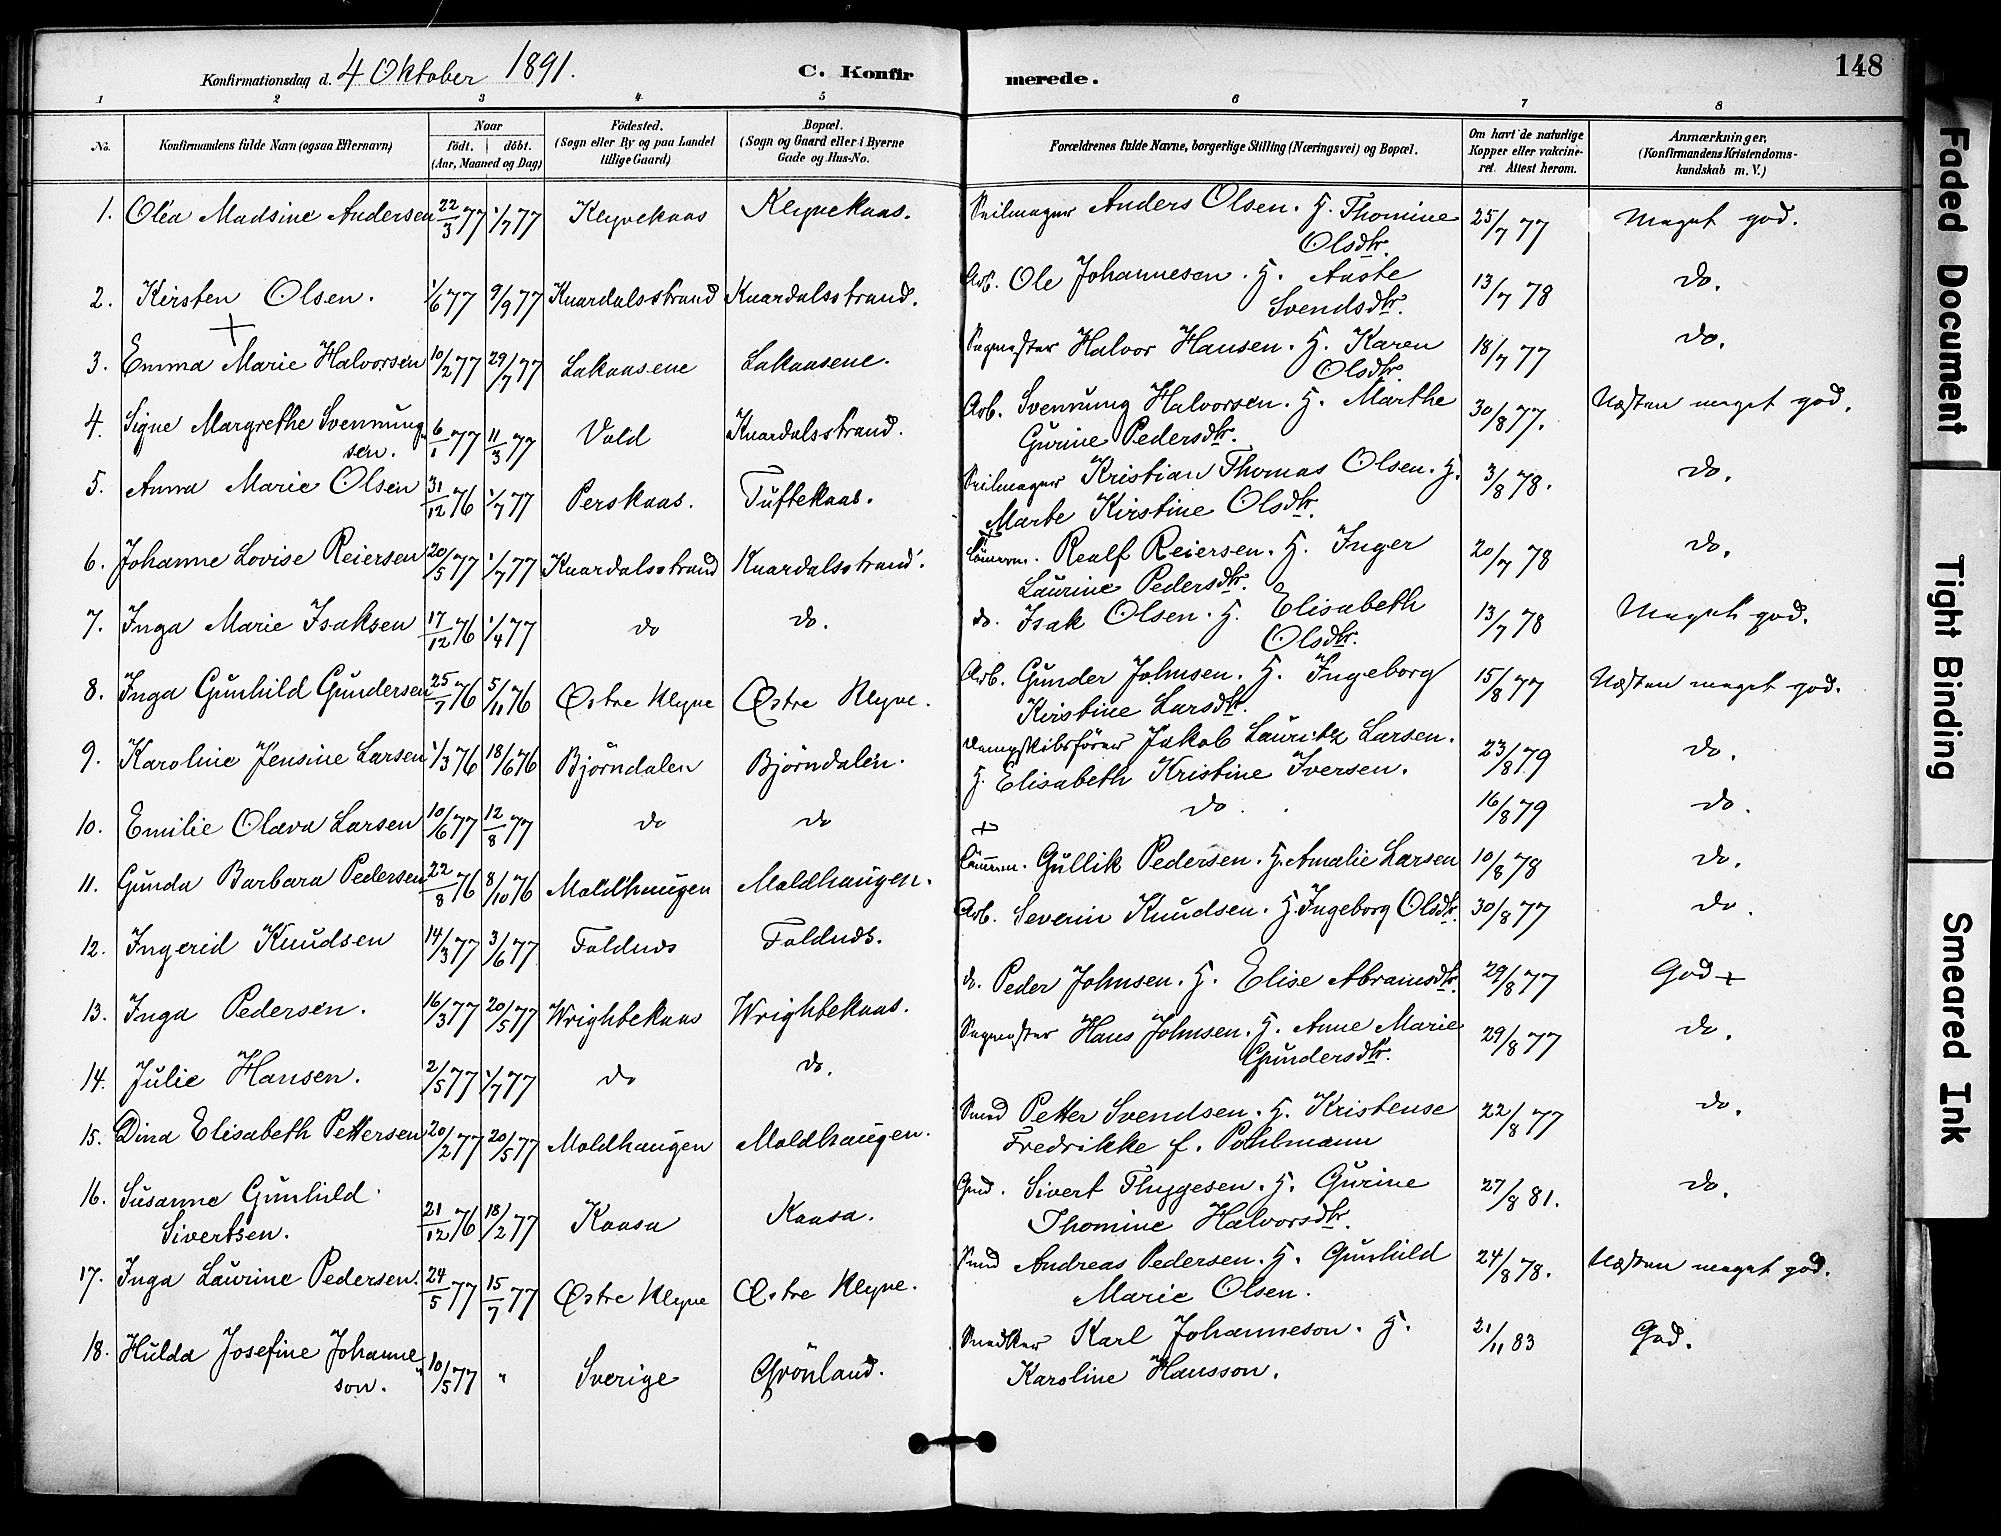 Konfirmationsdag d. 4 Oktober 1891.
C. Konfir
merede.
148
1 2 3 4 5 6 7 8
No.
Konfirmandens fulde Navn (ogsaa Efternavn)
Naar
födt. döbt.
(Aar, Maaned og Dag)
Födested.
(Sogn eller By og paa Landet
tillige Gaard)
Bopæl.
(Sogn og Gaard eller i Byerne
Gade og Hus-No.
Forældrenes fulde Navne, borgerlige Stilling (Næringsvei) og Bopæl.
Om havt de naturlige
Kopper eller vakcine-
ret. Attest herom.
Anmærkninger,
(Konfirmandens Kristendoms-
kundskab m. V.)
1. Olea Madsine Andersen 22/3 77 1/7 77 Klyvekaas Klyvekaas. Seilmager Anders Olsen. H. Thomine 25/7 77 Meget god.
Olsdtr.
2. Kirsten Olsen. 1/6 77 9/9 77 Knardalsstrand Knardalsstrand. Arb. Ole Johannesen. H. Aaste 13/7 78 do.
Svendsdtr.
3. Emma Marie Halvorsen 10/2 77 29/7 77 Lakaasene Lakaasene. Sagmester Halvor Hansen. H. Karen 18/7 77 do.
Olsdtr.
4. Signe Margrethe Svennung- 6/1 77 11/3 77 Vold Knardalsstrand. Arb. Svennung Halvorsen. H. Marthe 30/8 77. Næsten meget god.
sen. Gurine Pedersdtr.
5. Anna Marie Olsen 31/12 76 1/7 77 Perskaas. Tuftekaas. Seilmager Kristian Thomas Olsen. H. 3/8 78. do.
Marte Kirstine Olsdtr.
6. Johanne Lovise Reiersen 20/5 77 1/7 77 Knardalsstrand Knardalsstrand. Tömmerm. Realf Reiersen. H. Inger 20/7 78 do.
Laurine Pedersdtr.
7. Inga Marie Isaksen 17/12 76 1/4 77 do do. do. Isak Olsen. H. Elisabeth 13/7 78 Meget god.
Olsdtr.
8. Inga Gunhild Gundersen 25/7 76 5/11 76 Østre Klyve Østre Klyve. Arb. Gunder Johnsen. H. Ingeborg 15/8 77 Næsten meget god.
Kirstine Larsdtr.
9. Karoline Jensine Larsen 1/3 76 18/6 76 Björndalen Björndalen. Dampskibsförer Jakob Lauritz Larsen. 23/8 79 do.
H. Elisabeth Kristine Iversen.
10. Emilie Olava Larsen 10/6 77 12/8 77 do do do 16/8 79 do.
11. Gunda Barbara Pedersen 22/8 76 8/10 76 Moldhaugen Moldhaugen. Tömmerm. Gullik Pedersen. H. Amalie Larsen 10/8 78 do.
12. Ingerid Knudsen 14/3 77 3/6 77 Foldnes Foldnes. Arb. Severin Knudsen. H. Ingeborg Olsdtr. 30/8 77 do.
13. Inga Pedersen. 16/3 77 20/5 77 Wrightekaas Wrightekaas. do. Peder Johnsen. H. Elise Abramsdtr. 29/8 77 God +
14. Julie Hansen. 2/5 77 1/7 77 do do. Sagmester Hans Johnsen. H. Anne Marie 29/8 77 do.
Gundersdtr.
15. Dina Elisabeth Pettersen 20/2 77 20/5 77 Moldhaugen Moldhaugen. Smed Petter Svendsen. H. Kristense 22/8 77 do.
Fredrikke f. Pohlmann
16. Susanne Gunhild 21/12 76 18/2 77 Kaasa Kaasa. Gmd. Sivert Thygesen. H. Gurine 27/8 81. do.
Sivertsen. Thomine Halvorsdtr.
17. Inga Laurine Pedersen. 24/5 77 15/7 77 Østre Klyve Østre Klyve. Smed Andreas Pedersen. H. Gunhild 24/8 78. Næsten meget god.
Marie Olsen.
18. Hulda Josefine Johanne- 10/5 77 " Sverige Grönland. Snedker Karl Johanneson. H. 21/11 83 God.
son. Karoline Hansson.
Faded Document
Tight Binding
Smeared Ink